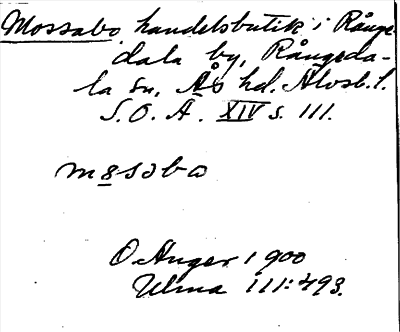 Mossabo, handelsbutik i Långe-
dala by, Rångeda-
la sn, Ås hd. Älvsb. l.
S.O.Ä. XIV s. 111.
m8sába
O. Anger 1900
Ulma 111:493.